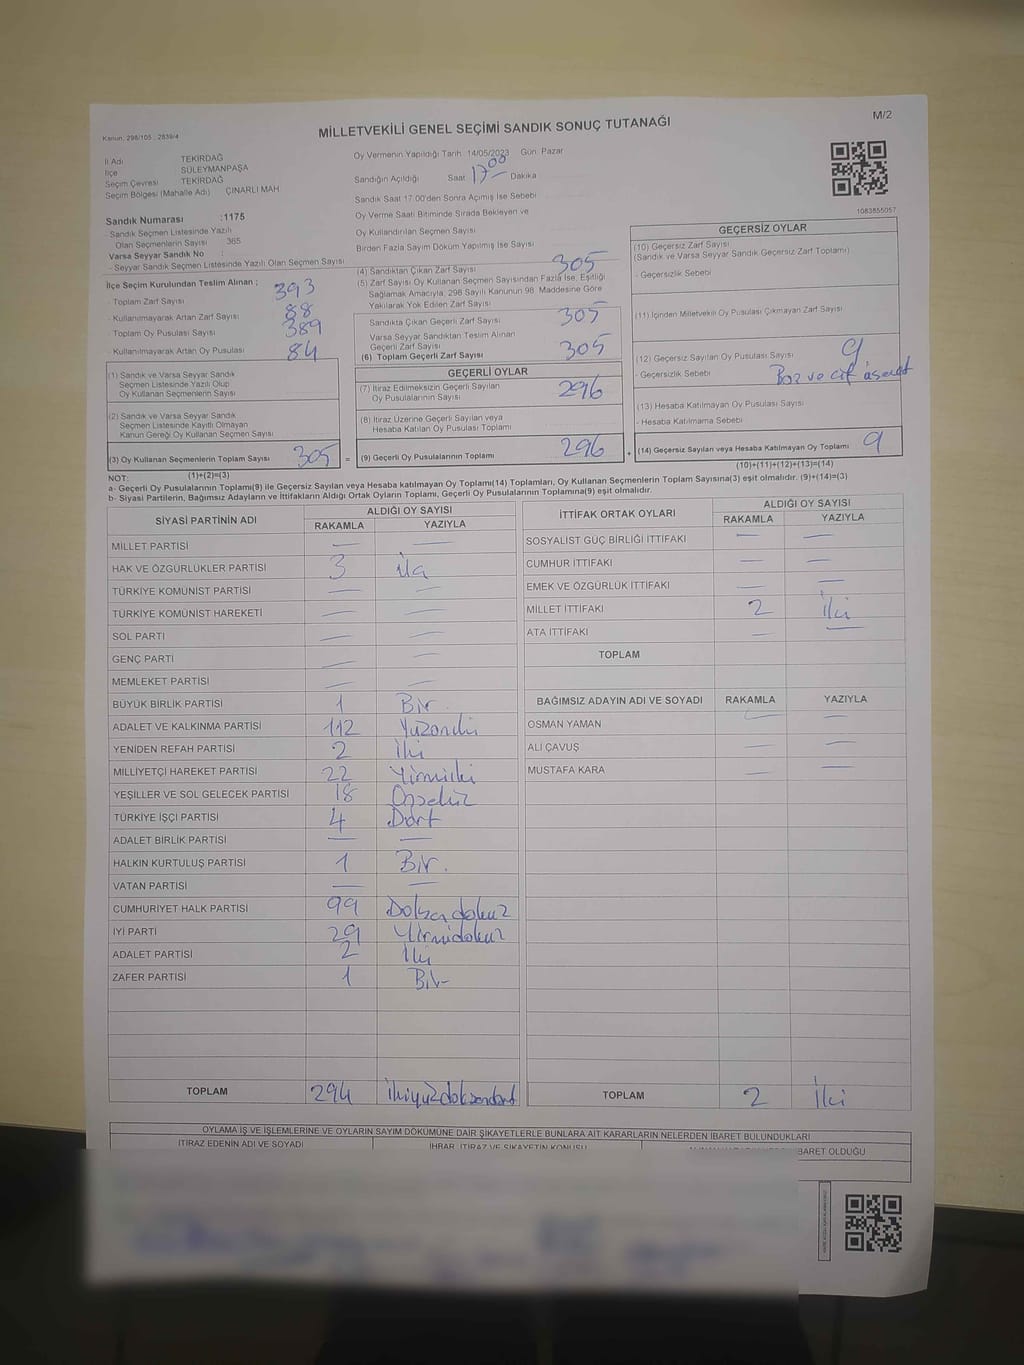 M/2
Kanun: 298/105 ; 2839/4
MİLLETVEKİLİ GENEL SEÇİMİ SANDIK SONUÇ TUTANAĞI
İl Adı TEKİRDAĞ
İlçe SÜLEYMANPAŞA
Seçim Çevresi TEKİRDAĞ
Seçim Bölgesi (Mahalle Adı) ÇINARLI MAH
Sandık Numarası :1175
- Sandık Seçmen Listesinde Yazılı
Olan Seçmenlerin Sayısı : 365
Varsa Seyyar Sandık No :
- Seyyar Sandık Seçmen Listesinde Yazılı Olan Seçmen Sayısı
Oy Vermenin Yapıldığı Tarih 14/05/2023 Gün: Pazar
Sandığın Açıldığı Saat 17 00 Dakika
Sandık Saat 17.00'den Sonra Açımış İse Sebebi
Oy Verme Saati Bitiminde Sırada Bekleyen ve
Oy Kullandırılan Seçmen Sayısı
Birden Fazla Sayım Döküm Yapılmış İse Sayısı
1083855057
İlçe Seçim Kurulundan Teslim Alınan ;
- Toplam Zarf Sayısı 393
- Kullanılmayarak Artan Zarf Sayısı 88
- Toplam Oy Pusulası Sayısı 389
- Kullanılmayarak Artan Oy Pusulası 84
(1) Sandık ve Varsa Seyyar Sandık
Seçmen Listesinde Yazılı Olup
Oy Kullanan Seçmenlerin Sayısı
(2) Sandık ve Varsa Seyyar Sandık
Seçmen Listesinde Kayıtlı Olmayan
Kanun Gereği Oy Kullanan Seçmen Sayısı
(3) Oy Kullanan Seçmenlerin Toplam Sayısı 305 =
(1)+(2)=(3)
(4) Sandıktan Çıkan Zarf Sayısı 305
(5) Zarf Sayısı Oy Kullanan Seçmen Sayısından Fazla İse, Eşitliği
Sağlamak Amacıyla, 298 Sayılı Kanunun 98. Maddesine Göre
Yakılarak Yok Edilen Zarf Sayısı
Sandıkta Çıkan Geçerli Zarf Sayısı 305
Varsa Seyyar Sandıktan Teslim Alınan
Geçerli Zarf Sayısı
(6) Toplam Geçerli Zarf Sayısı 305
GEÇERLİ OYLAR
(7) İtiraz Edilmeksizin Geçerli Sayılan
Oy Pusulalarının Sayısı 296
(8) İtiraz Üzerine Geçerli Sayılan veya
Hesaba Katılan Oy Pusulası Toplamı
(9) Geçerli Oy Pusulalarının Toplamı 296 +
GEÇERSİZ OYLAR
(10) Geçersiz Zarf Sayısı
(Sandık ve Varsa Seyyar Sandık Geçersiz Zarf Toplamı)
- Geçersizlik Sebebi
(11) İçinden Milletvekili Oy Pusulası Çıkmayan Zarf Sayısı
(12) Geçersiz Sayılan Oy Pusulası Sayısı 9
- Geçersizlik Sebebi
(13) Hesaba Katılmayan Oy Pusulası Sayısı
- Hesaba Katılmama Sebebi
(14) Geçersiz Sayılan veya Hesaba Katılmayan Oy Toplamı 9
(10)+(11)+(12)+(13)=(14)
NOT:
a- Geçerli Oy Pusulalarının Toplamı(9) ile Geçersiz Sayılan veya Hesaba katılmayan Oy Toplamı(14) Toplamları, Oy Kullanan Seçmenlerin Toplam Sayısına(3) eşit olmalıdır. (9)+(14)=(3)
b- Siyasi Partilerin, Bağımsız Adayların ve İttifakların Aldığı Ortak Oyların Toplamı, Geçerli Oy Pusulalarının Toplamına(9) eşit olmalıdır.
SİYASİ PARTİNİN ADI ALDIĞI OY SAYISI
RAKAMLA YAZIYLA
MİLLET PARTİSİ — —
HAK VE ÖZGÜRLÜKLER PARTİSİ 3 Üç
TÜRKİYE KOMÜNİST PARTİSİ — —
TÜRKİYE KOMÜNİST HAREKETİ — —
SOL PARTİ — —
GENÇ PARTİ — —
MEMLEKET PARTİSİ — —
BÜYÜK BİRLİK PARTİSİ 1 Bir
ADALET VE KALKINMA PARTİSİ 112 Yüzoniki
YENİDEN REFAH PARTİSİ 2 İki
MİLLİYETÇİ HAREKET PARTİSİ 22 Yirmiiki
YEŞİLLER VE SOL GELECEK PARTİSİ 18 Onsekiz
TÜRKİYE İŞÇİ PARTİSİ 4 Dört
ADALET BİRLİK PARTİSİ — —
HALKIN KURTULUŞ PARTİSİ 1 Bir.
VATAN PARTİSİ — —
CUMHURİYET HALK PARTİSİ 99 Doksandokuz
İYİ PARTİ 29 Yirmidokuz
ADALET PARTİSİ 2 İki
ZAFER PARTİSİ 1 Bir
TOPLAM 294 İkiyüzdoksandört
İTTİFAK ORTAK OYLARI ALDIĞI OY SAYISI
RAKAMLA YAZIYLA
SOSYALİST GÜÇ BİRLİĞİ İTTİFAKI — —
CUMHUR İTTİFAKI — —
EMEK VE ÖZGÜRLÜK İTTİFAKI —
MİLLET İTTİFAKI 2 İki
ATA İTTİFAKI — —
TOPLAM
BAĞIMSIZ ADAYIN ADI VE SOYADI RAKAMLA YAZIYLA
OSMAN YAMAN — —
ALİ ÇAVUŞ — —
MUSTAFA KARA — —
TOPLAM 2 İki
OYLAMA İŞ VE İŞLEMLERINE VE OYLARIN SAYIM DÖKÜMÜNE DAİR ŞİKAYETLERLE BUNLARA AİT KARARLARIN NELERDEN İBARET BULUNDUKLARI
İTİRAZ EDENİN ADI VE SOYADI
İHBAR, İTİRAZ VE ŞİKAYETİN KONUSU
İBARET OLDUĞU